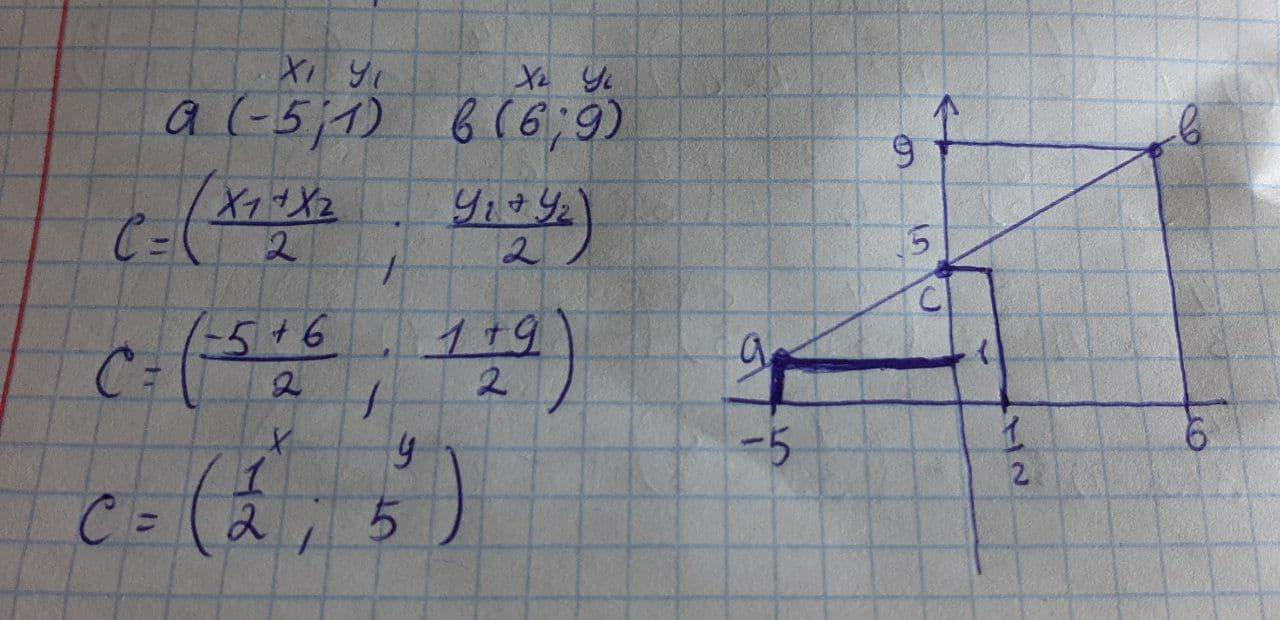 x₁ y₁ x₂ y₂
a (-5; 1) в (6; 9)
C = ( (x₁ + x₂)/2 ; (y₁ + y₂)/2 )
C = ( (-5 + 6)/2 ; (1 + 9)/2 )
x y
C = ( 1/2 ; 5 )
9 в
5
C
a 1
-5 1/2 6